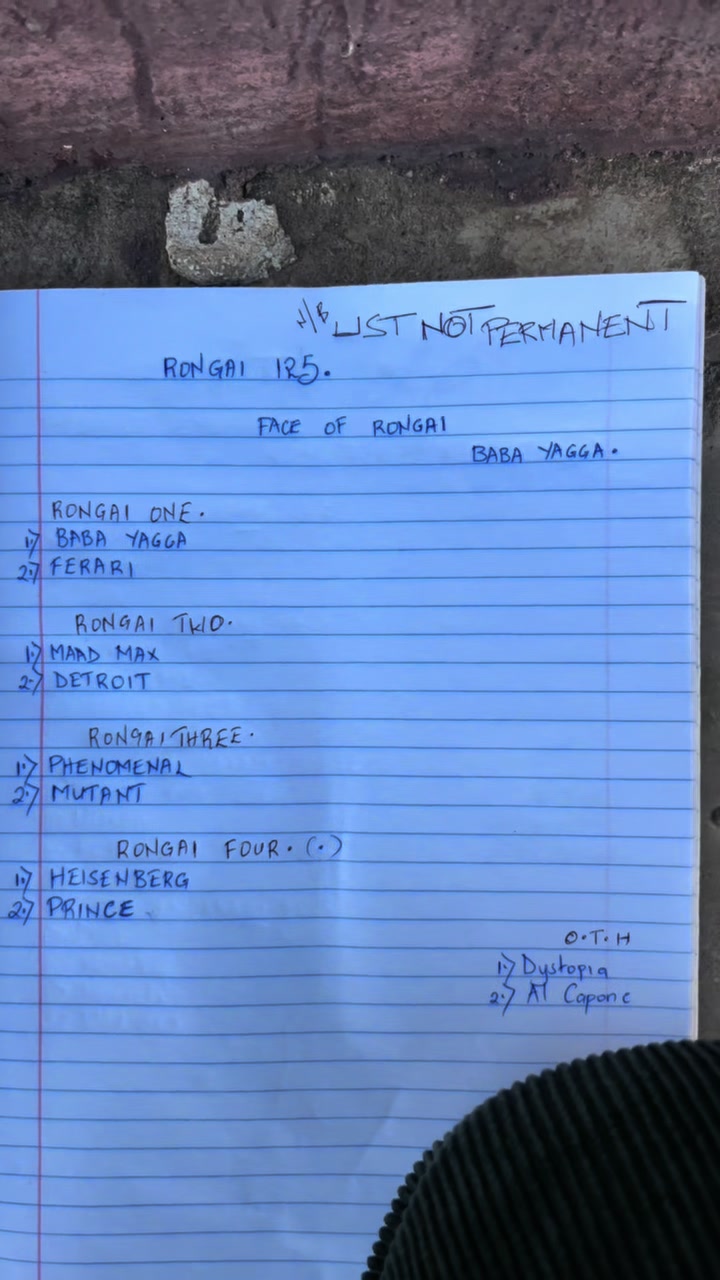 N/B LIST NOT PERMANENT
RONGAI 125.
FACE OF RONGAI
BABA YAGGA.
RONGAI ONE.
1.) BABA YAGGA
2.) FERARI
RONGAI TWO.
1.) MAAD MAX
2.) DETROIT
RONGAI THREE.
1.) PHENOMENAL
2.) MUTANT
RONGAI FOUR. (.)
1.) HEISENBERG
2.) PRINCE
O.T.H
1.) Dystopia
2.) Al Capone